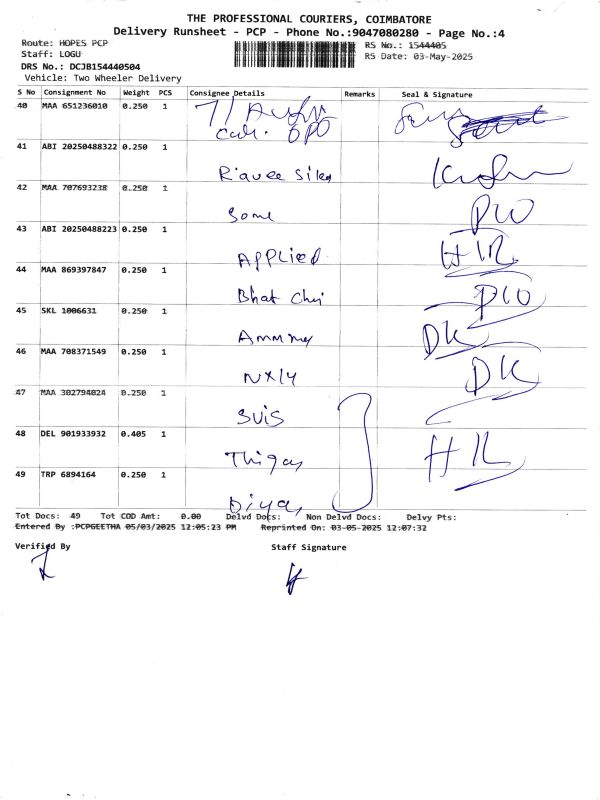 THE PROFESSIONAL COURIERS, COIMBATORE
Delivery Runsheet - PCP - Phone No.:9047080280 - Page No.:4
Route: HOPES PCP RS No.: 1544405
Staff: LOGU RS Date: 03-May-2025
DRS No.: DCJB154440504
Vehicle: Two Wheeler Delivery
S No Consignment No Weight PCS Consignee Details Remarks Seal & Signature
40 MAA 651236010 0.250 1
41 ABI 20250488322 0.250 1
42 MAA 707693238 0.250 1
Some
43 ABI 20250488223 0.250 1
Applied HR
44 MAA 869397847 0.250 1
Bhat
45 SKL 1006631 0.250 1
DK
46 MAA 708371549 0.250 1
DK
47 MAA 302794024 0.250 1
48 DEL 901933932 0.405 1
49 TRP 6894164 0.250 1
Tot Docs: 49 Tot COD Amt: 0.00 Delvd Docs: Non Delvd Docs: Delvy Pts:
Entered By :PCPGEETHA 05/03/2025 12:05:23 PM Reprinted On: 03-05-2025 12:07:32
Verified By Staff Signature